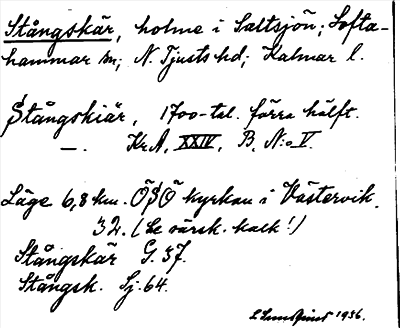 Stångskär, holme i Saltsjön; Lofta-
hammar sn; N. Tjusts hd; Kalmar l.
Stångskiär, 1700-tal. förra hälft.
—.  Kr.A, XXIV, B, N:o V.
Läge 6,8 km. ÖSÖ kyrkan i Västervik.
32. (Se särsk. kalk!)
Stångskär G. 37.
Stångsk. Sj. 64.
1936.